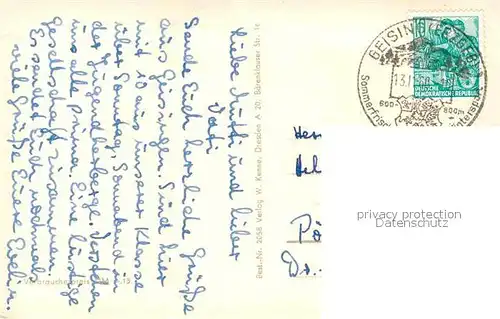 Liebe Mutti und lieber
Vati
Sende Euch herzliche Grüße
aus Geisingen. Sind hier
mit 10 aus unserer Klasse
über Sonntag, Sonnabend in
der Jugendherberge. Verstehen
uns alle prima. Eine lustige
Gesellschaft zusammen.
Es sendet Euch nochmals
viele Grüße Eure Evelin.
Verbraucherpreis
Best.-Nr. 3058 Verlag W. Kenne, Dresden A 20, Bärenklauser Str. 14
GEISING (ERZGEB)
Sommerfrische
600-800m
DEUTSCHE
DEMOKRATISCHE REPUBLIK
Her
Hel
Dr.
privacy protection
Datenschutz